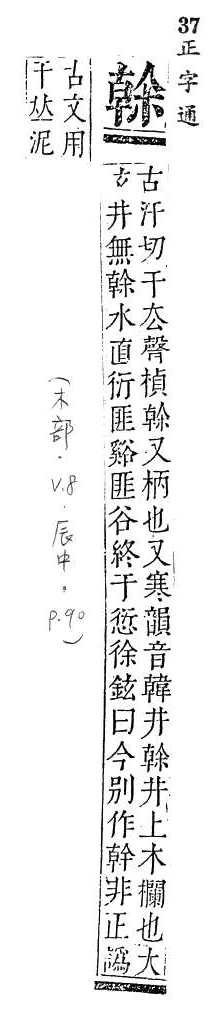 37 正字通
榦
古汗切干厺聲楨榦又柄也又寒韻音韓井榦井上木欄也大
玄井無榦水直衍匪谿匪谷終于愆徐鉉曰今別作幹非正譌
古文用
干泥
(木部．V.8．辰中．P.90)